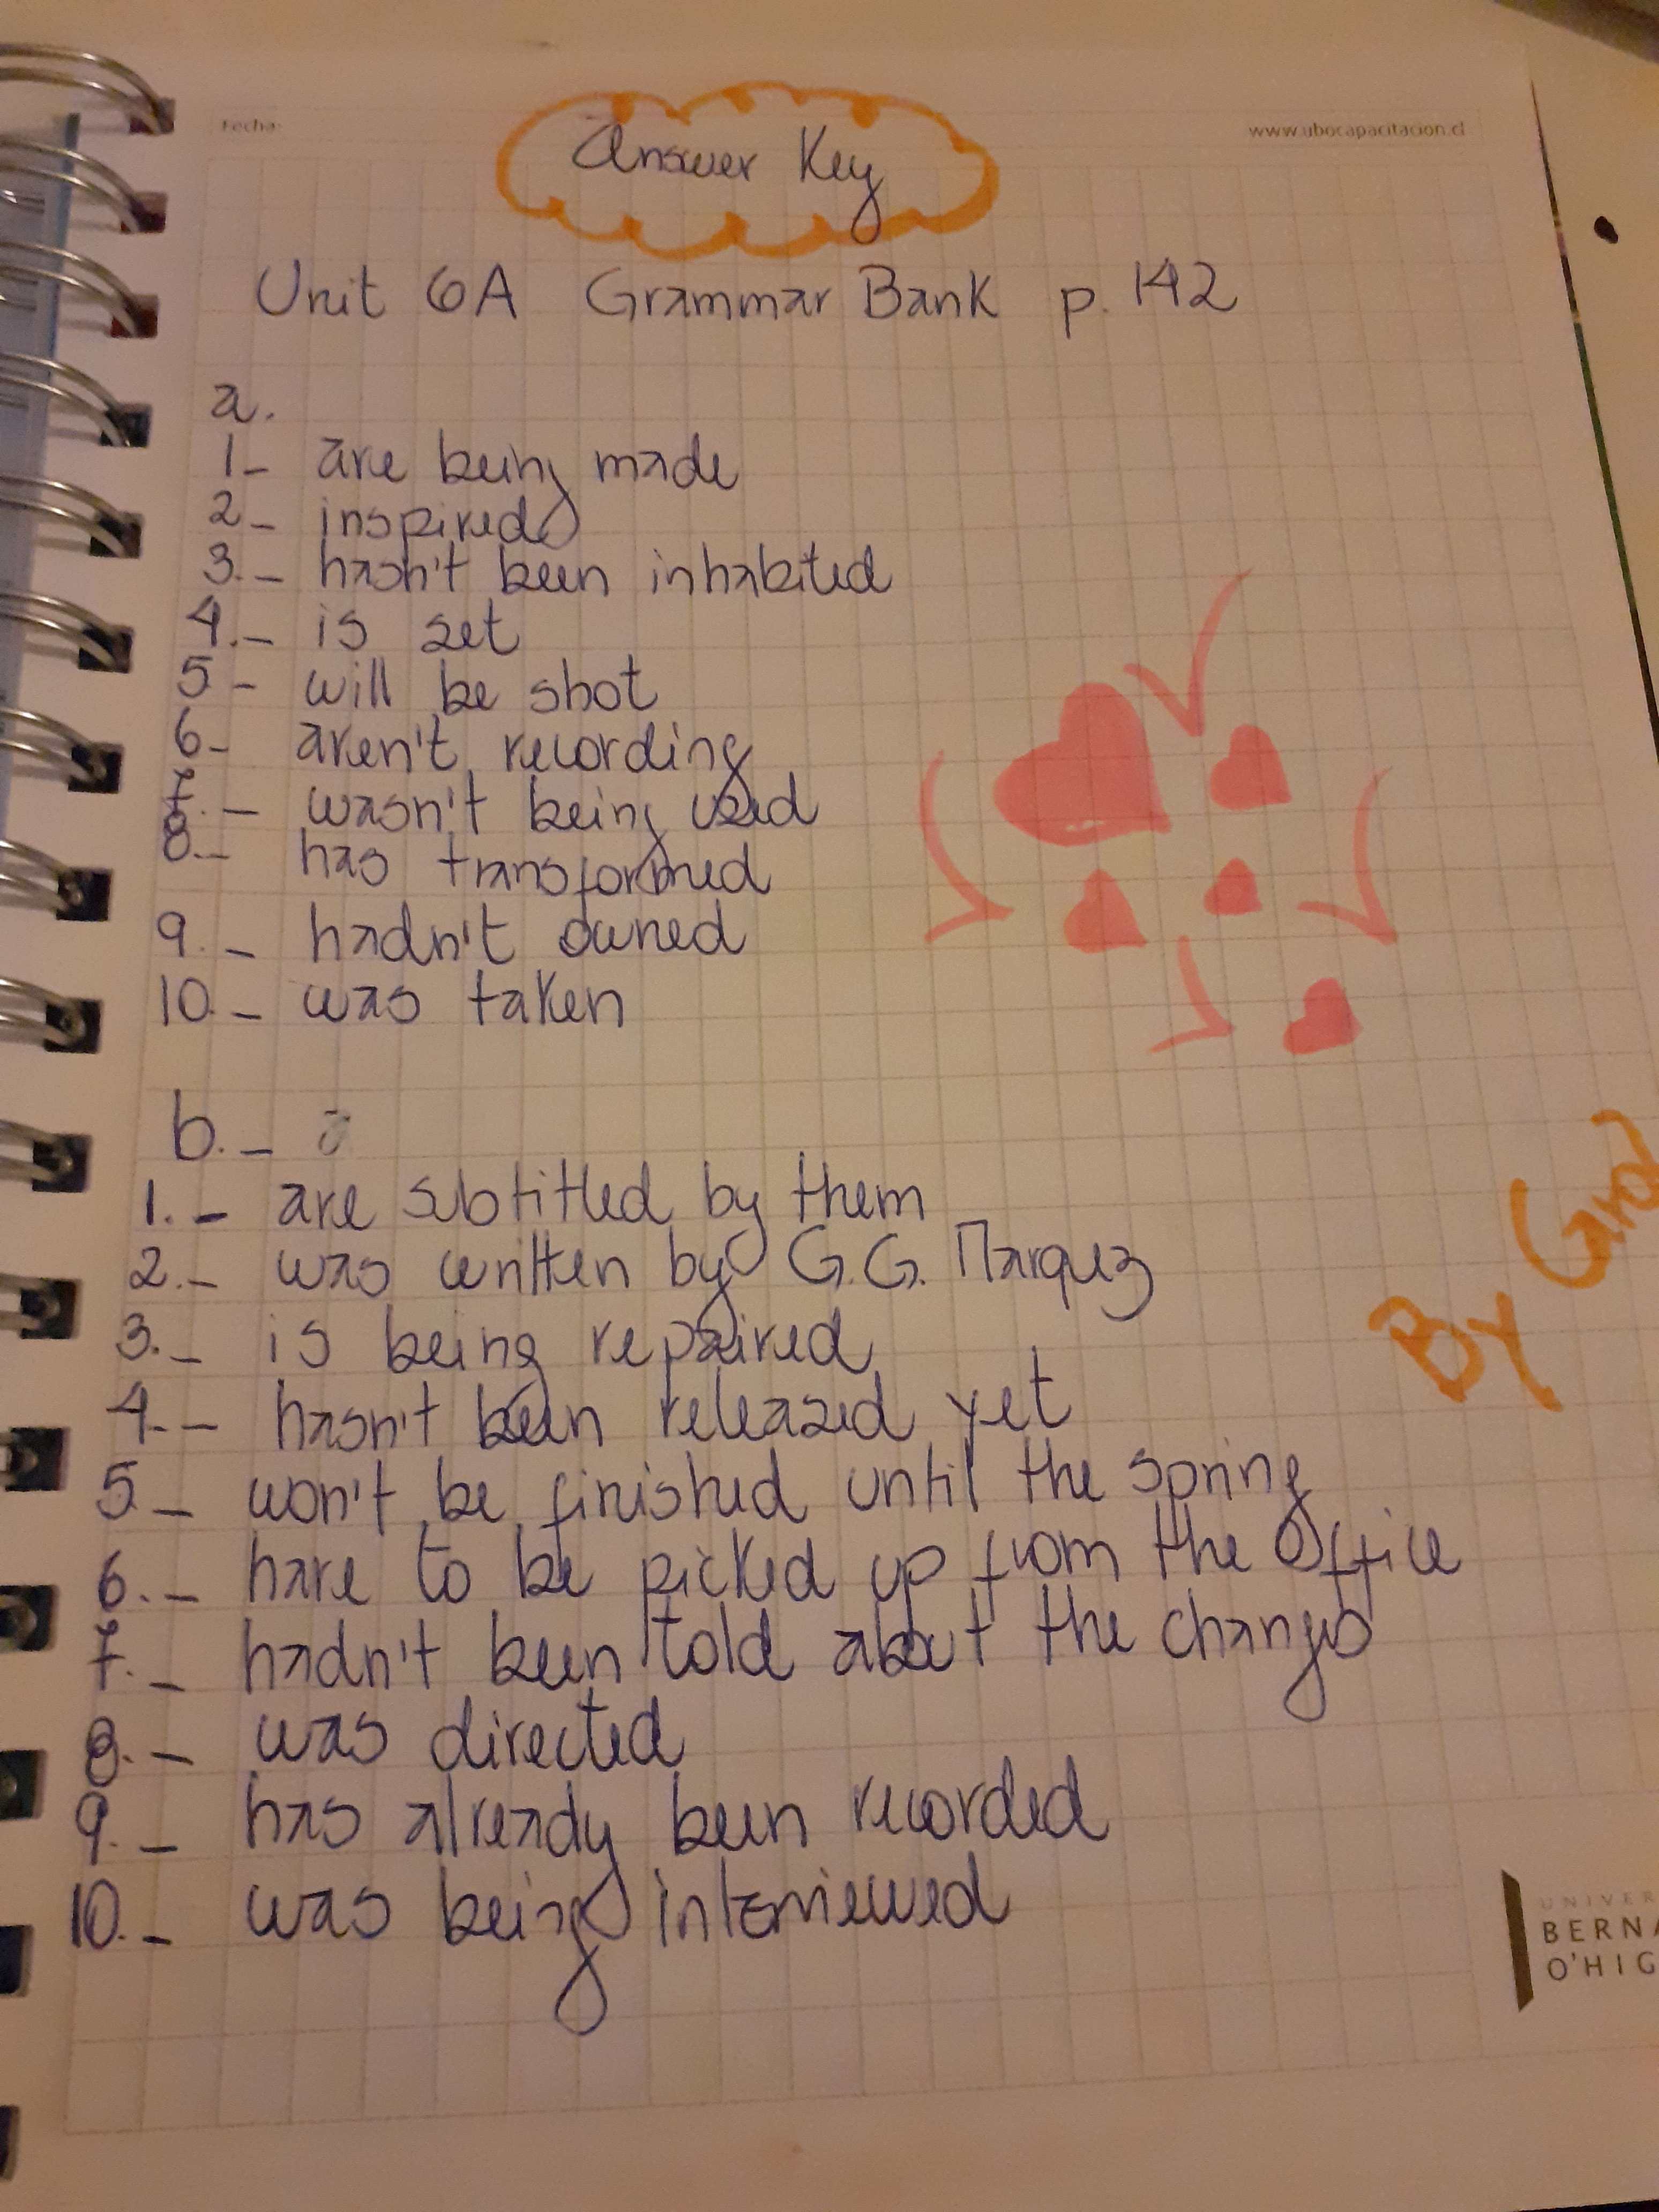 Fecha:
www.ubocapacitacion.cl
Answer Key
Unit 6A Grammar Bank p. 142
a.
1- are being made
2- inspired
3.- hasn't been inhabited
4.- is set
5- will be shot
6- aren't recording
7.- wasn't being used
8.- has transformed
9.- hadn't owned
10.- was taken
b.-
1.- are subtitled by them
2.- was written by G.G. Marquez
3.- is being repaired
4.- hasn't been released yet
5.- won't be finished until the spring
6.- have to be picked up from the office
7.- hadn't been told about the changes
8.- was directed
9.- has already been recorded
10.- was being interviewed
By
UNIVER
BERNA
O'HIG